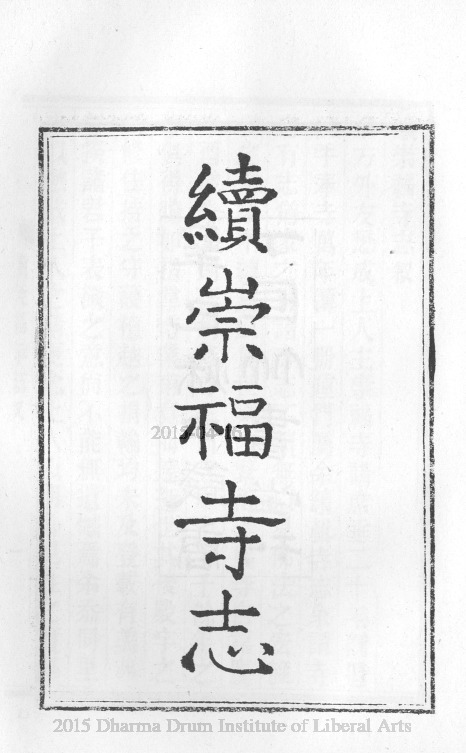 續崇福寺志
2015-04-16
2015 Dharma Drum Institute of Liberal Arts